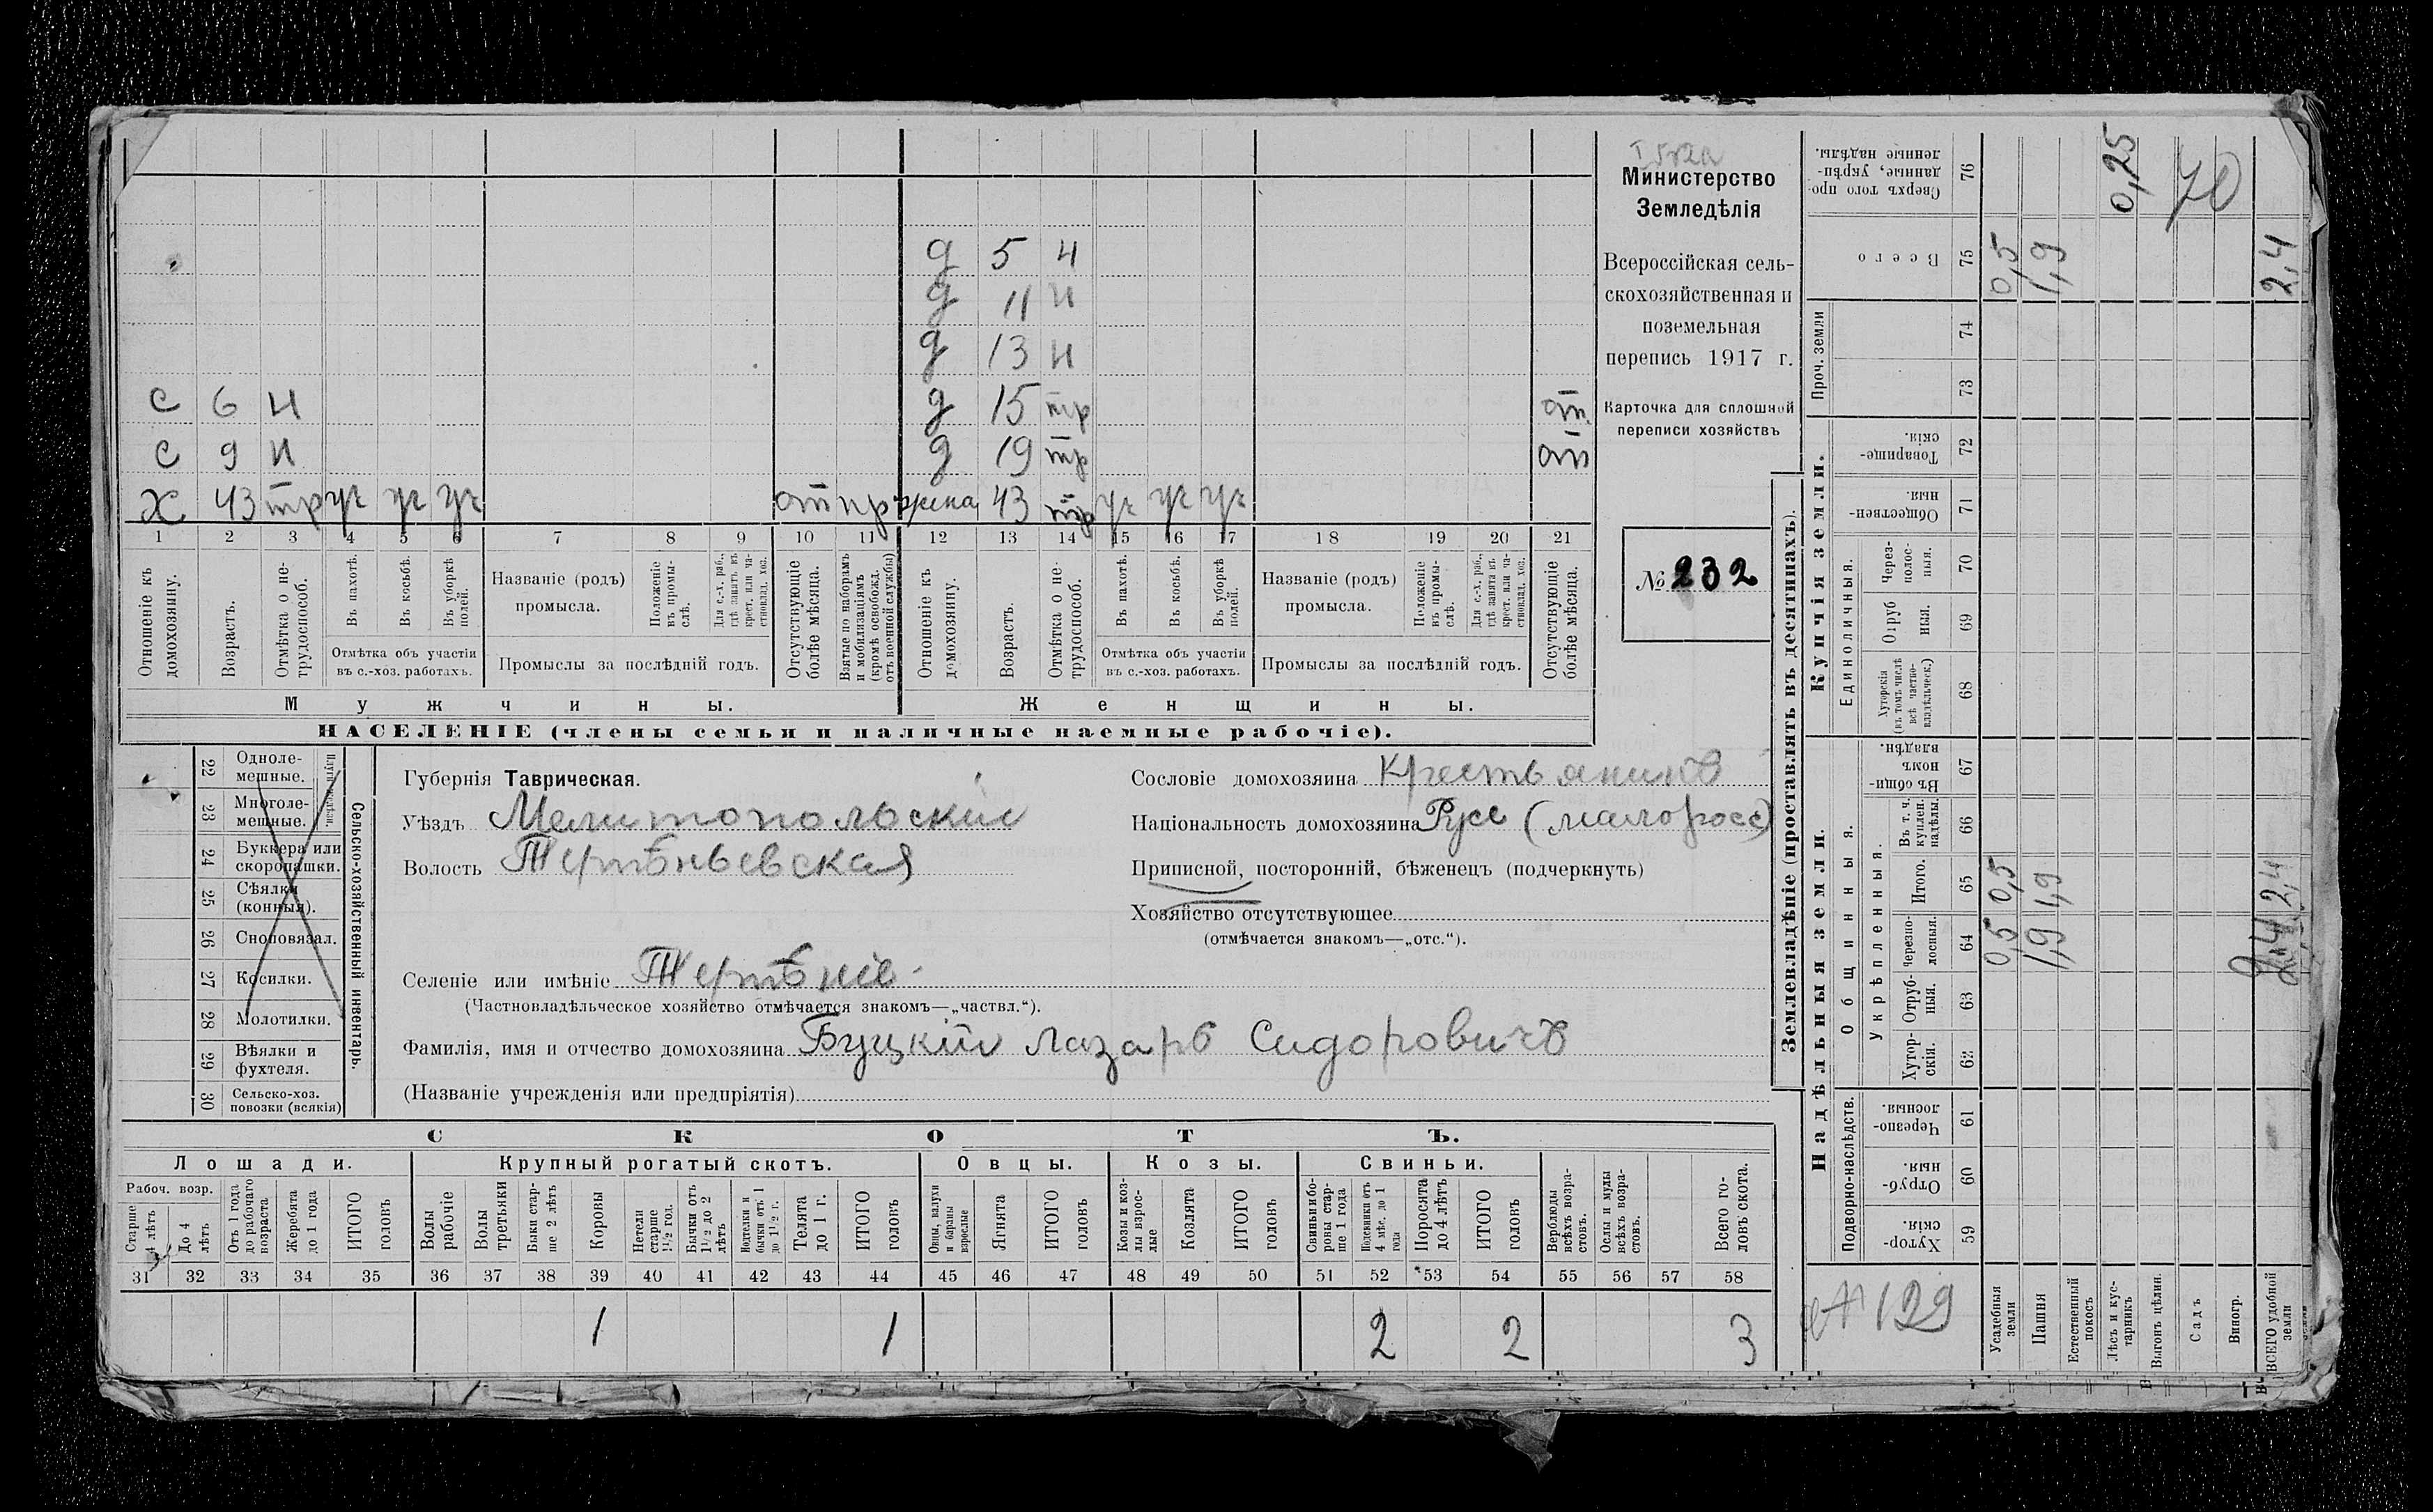 Министерство
Земледѣлія
Всероссійская сель-
скохозяйственная и
поземельная
перепись 1917 г.
Карточка для сплошной
переписи хозяйствъ
№ 232
д 5 н
д 11 н
д 13 н
с 6 н д 15 тр от.
с 9 н д 19 тр от
х 43 тр уч уч уч от пр жена 43 тр уч уч уч
1 2 3 4 5 6 7 8 9 10 11 12 13 14 15 16 17 18 19 20 21
Отношеніе къ домохозяину.
Возрастъ.
Отмѣтка о не-трудоспособ.
Въ пахотѣ.
Въ косьбѣ.
Въ уборкѣ полей.
Отмѣтка объ участіи
въ с.-хоз. работахъ.
Названіе (родъ)
промысла.
Положеніе въ промы-слѣ.
Для с.-х. раб., гдѣ занятъ въ крест. или ча-стновлад. хоз.
Промыслы за послѣдній годъ.
Отсутствующіе болѣе мѣсяца.
Взятые по наборамъ и мобилизаціямъ (кромѣ освобожд. отъ военной службы)
Отношеніе къ домохозяину.
Возрастъ.
Отмѣтка о не-трудоспособ.
Въ пахотѣ.
Въ косьбѣ.
Въ уборкѣ полей.
Отмѣтка объ участіи
въ с.-хоз. работахъ.
Названіе (родъ)
промысла.
Положеніе въ промы-слѣ.
Для с.-х. раб., гдѣ занята въ крест. или ча-стновлад. хоз.
Промыслы за послѣдній годъ.
Отсутствующіе болѣе мѣсяца.
Мужчины. Женщины.
НАСЕЛЕНІЕ (члены семьи и наличные наемные рабочіе).
22 Одноле-мешные.
23 Многоле-мешные.
24 Буккера или скоропашки.
25 Сѣялки (конныя).
26 Сноповязал.
27 Косилки.
28 Молотилки.
29 Вѣялки и фухтеля.
30 Сельско-хоз. повозки (всякія)
Сельско-хозяйственный инвентарь.
Губернія Таврическая.
Уѣздъ Мелитопольскій
Волость Терпѣньевская
Селеніе или имѣніе Терпѣніе
(Частновладѣльческое хозяйство отмѣчается знакомъ—„частвл.“).
Фамилія, имя и отчество домохозяина Буцкій Лазарь Сидоровичъ
(Названіе учрежденія или предпріятія)
Сословіе домохозяина Крестьянинъ
Національность домохозяина Русс (малоросс)
Приписной, посторонній, бѣженецъ (подчеркнуть)
Хозяйство отсутствующее
(отмѣчается знакомъ—„отс.“).
СКОТЪ.
Лошади. Крупный рогатый скотъ. Овцы. Козы. Свиньи.
Рабоч. возр.
Старше 4 лѣтъ
До 4 лѣтъ
Отъ 1 года до рабочаго возраста
Жеребята до 1 года
ИТОГО головъ
Волы рабочіе
Волы третьяки
Быки стар-ше 2 лѣтъ
Коровы
Нетели старше 1½ год.
Бычки отъ 1½ до 2 лѣтъ
Подтелки и бычки отъ 1 до 1½ г.
Телята до 1 г.
ИТОГО головъ
Овцы, валухи и бараны взрослые
Ягнята
ИТОГО головъ
Козы и коз-лы взрос-лые
Козлята
ИТОГО головъ
Свиньи и бо-ровы стар-ше 1 года
Подсвинки отъ 4 мѣс. до 1 года
Поросята до 4 лѣтъ
ИТОГО головъ
Верблюды всѣхъ возра-стовъ.
Ослы и мулы всѣхъ возра-стовъ.
Всего го-ловъ скота.
31 32 33 34 35 36 37 38 39 40 41 42 43 44 45 46 47 48 49 50 51 52 53 54 55 56 57 58
1 1 2 2 3
Землевладѣніе (проставлять въ десятинахъ).
Надѣльныя земли. Купчія земли. Проч. земли
Подворно-наслѣдств.
Общинныя.
Укрѣпленныя.
Единоличныя.
Хутор-скія. 59
Отруб-ныя. 60
Черезпо-лосныя. 61
Хутор-скія. 62
Отруб-ныя. 63
Черезпо-лосныя. 64
Итого. 65
Въ т. ч. куплен. надѣлы. 66
Въ общи-номъ владѣн. 67
Хуторскія (въ томъ числѣ всѣ частно-владѣльческ.) 68
Отруб ныя. 69
Через-полос-ныя. 70
Обществен-ныя. 71
Товарище-скія. 72
73
74
Всего 75
Сверхъ того про-данные, укрѣп-ленные надѣлы. 76
Усадебныя земли 0,5 0,5 0,5
Пашня 1,9 1,9 1,9
Естественный покосъ
Лѣсъ и кус-тарникъ 0,25
Выгонъ цѣлин.
Садъ 70
Виногр.
ВСЕГО удобной земли 2,4 2,4 2,4
129